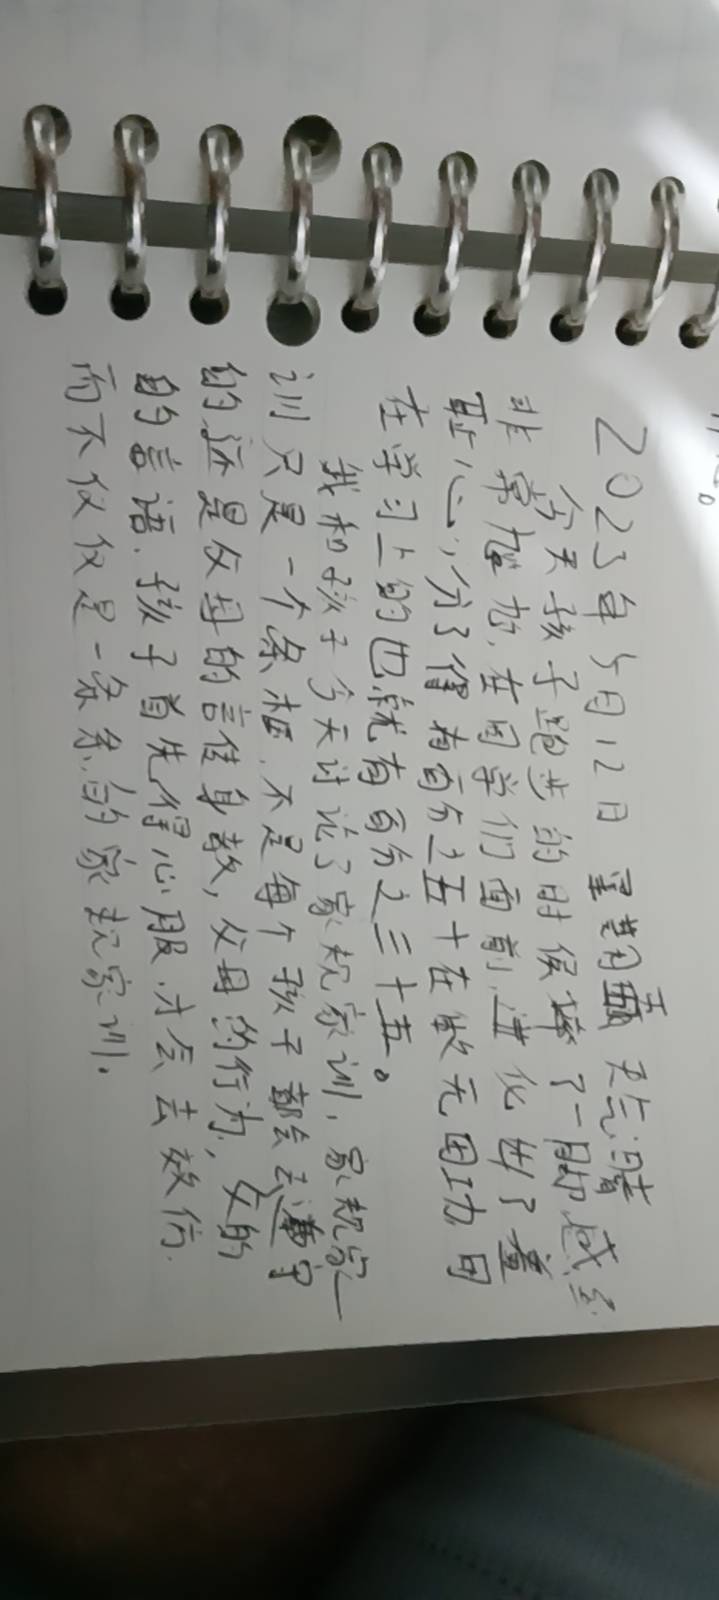 2023年5月12日 星期五 天气晴
今天孩子跑步的时候摔了一脚感到
非常尴尬,在同学们面前,进化出了羞
耻心,分了僅有百分之五十在做无用功 回
在学习上的也就有百分之三十五。
我和孩子今天讨论了家规家训,家规家
训只是一个条框,不是每个孩子都会去遵守
的还是父母的言传身教,父母的行为,父的
的言语.孩子首先得心服,才会去效仿.
而不仅仅是一条条的家规家训.